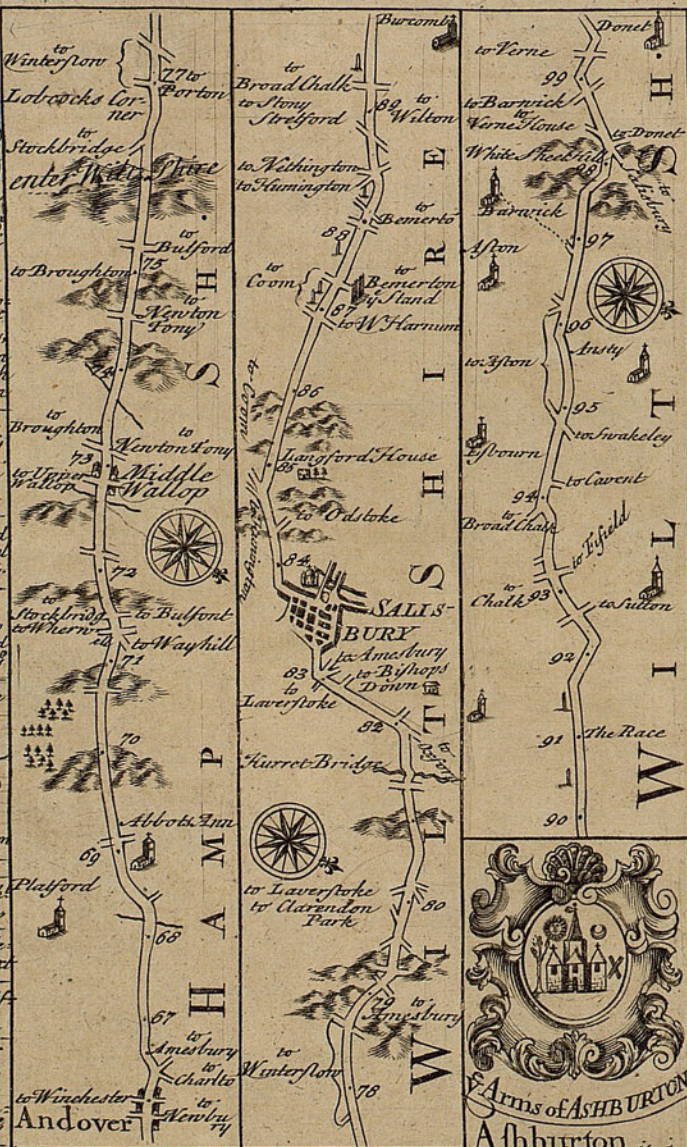 to
Winterslow
77 to
Porton
Lobcocks Cor-
ner
to
Stockbridge
enter Wilt Shire
to
Bulford
75
to Broughton
to
Newton
Tony
74
to
Broughton
to
Newton Tony
73
to Upper
Wallop
Middle
Wallop
72
to
Stockbridg
to Bulfont
to Wherw
ell
to Wayhill
71
70
Abbots Ann
69
Platford
68
67
to
Amesbury
to
Charlto
to Winchester
to
Newbu
ry
Andover
HAMP SH.
Burcomb
to
Broad Chalk
to Stony
Stretford
89
to
Wilton
to Nethington
to Humington
Bemerto
88
to
Coom
to
Bemerton
by Stand
87
to W Harnum
to Coom
86
Langford House
85
to Odstoke
to Honington
84
SALIS-
BURY
to Amesbury
83
to Bishops
Down
to
Laverstoke
82
to
Kurret Bridge
to Laverstoke
to Clarendon
Park
80
79
to
Amesbury
to
Winterslow
78
WILTSHIRE
Donet
to Verne
99
to Barwick
to
Verne House
to Donet
White Sheet Hill
98
to
Salisbury
Barwick
97
Aston
96
Ansty
to Aston
95
to Swakeley
Esbourn
to Cavent
94
to
Broad Chalk
to Fifield
to
Chalk
93
to Sutton
92
91
The Race
90
WILTSH.
ye Arms of ASHBURTON
Ashburton